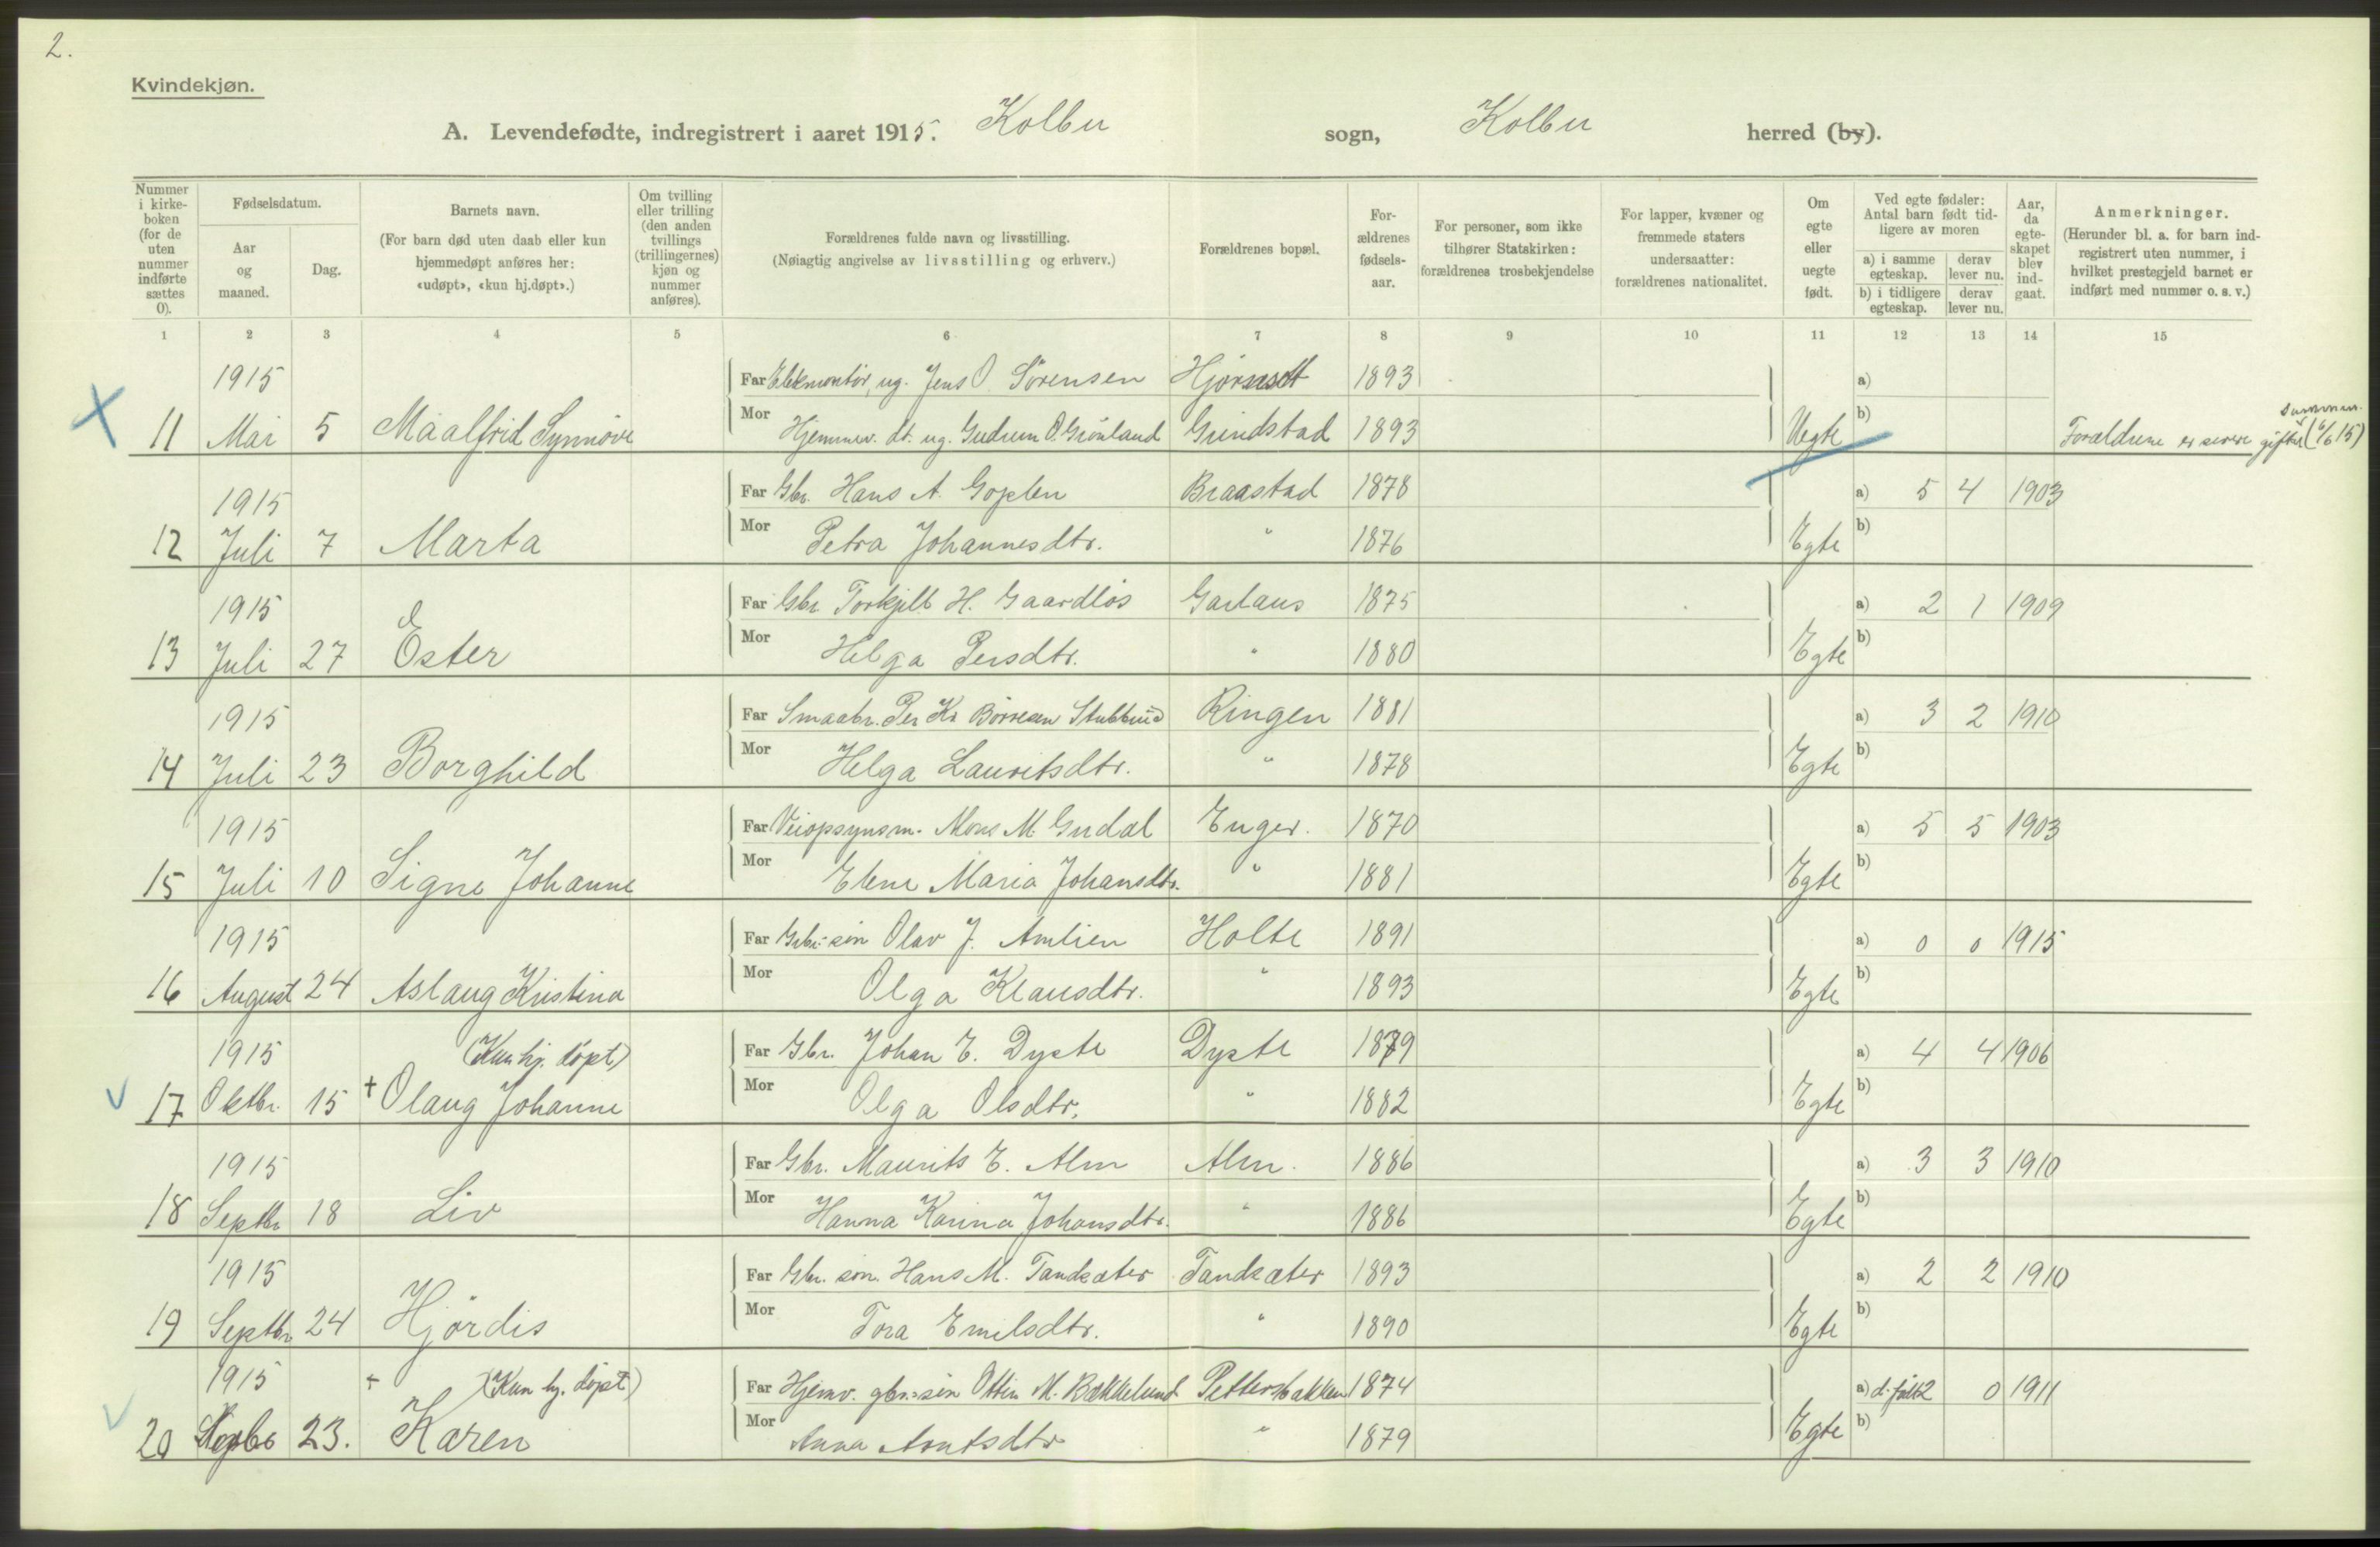 2.
Kvindekjøn.
A. Levendefødte, indregistrert i aaret 1915. Kolbu sogn, Kolbu herred (by).
Nummer i kirke-boken (for de uten nummer indførte sættes 0).
Fødselsdatum.
Aar og maaned.
Dag.
Barnets navn.
(For barn død uten daab eller kun hjemmedøpt anføres her: «udøpt», «kun hj.døpt».)
Om tvilling eller trilling (den anden tvillings (trillingernes) kjøn og nummer anføres).
Forældrenes fulde navn og livsstilling.
(Nøiagtig angivelse av livsstilling og erhverv.)
Forældrenes bopæl.
For-ældrenes fødsels-aar.
For personer, som ikke tilhører Statskirken: forældrenes trosbekjendelse
For lapper, kvæner og fremmede staters undersaatter: forældrenes nationalitet.
Om egte eller uegte født.
Ved egte fødsler: Antal barn født tid-ligere av moren
a) i samme egteskap.
derav lever nu.
b) i tidligere egteskap.
derav lever nu.
Aar, da egte-skapet blev ind-gaat.
Anmerkninger.
(Herunder bl. a. for barn ind-registrert uten nummer, i hvilket prestegjeld barnet er indført med nummer o. s. v.)
1 2 3 4 5 6 7 8 9 10 11 12 13 14 15
1915 Far Elekmontör, ug. Jens O. Sörensen 1893 a)
11 Mai 5 Maalfrid Synnöve Mor Hjemmev. dt. ug. Gudrun O. Grönland Grindstad 1893 Uegte b) Forældrene er senere giftet sammen (6/6 15)
1915 Far Gbr. Hans A. Goplen Braastad 1878 a) 5 4 1903
12 Juli 7 Marta Mor Petra Johannesdtr. " 1876 Egte b)
1915 Far Gbr. Torkjell H. Gaardlös Garlaus 1875 a) 2 1 1909
13 Juli 27 Ester Mor Helga Persdtr. " 1880 Egte b)
1915 Far Smaabr. Per Kr Börresen Ringen 1881 a) 3 2 1910
14 Juli 23 Borghild Mor Helga Lauritsdtr. " 1878 Egte b)
1915 Far Veiopsynsm. Mons M. Gudal Enger. 1870 a) 5 5 1903
15 Juli 10 Signe Johanne Mor Elene Maria Johansdtr. " 1881 Egte b)
1915 Far Gbr.-sön Olav J. Amlien Holte 1891 a) 0 0 1915
16 August 24 Aslaug Kristina Mor Olga Klausdtr. " 1893 Egte b)
1915 (Kun hj. döpt) Far Gbr. Johan E. Dyste Dyste 1879 a) 4 4 1906
17 Oktbr. 15 + Olaug Johanne Mor Olga Olsdtr. " 1882 Egte b)
1915 Far Gbr. Maurits E. Alm Alm. 1886 a) 3 3 1910
18 Septbr 18 Liv Mor Hanna Karina Johansdtr. " 1886 Egte b)
1915 Far Gbr. sön. Hans M. Tandsæter Tandsæter 1893 a) 2 2 1910
19 Septbr 24 Hjördis Mor Tora Emilsdtr. " 1890 Egte b)
1915 + (Kun hj. döpt) Far Hjemv. gbr.-sön Ottin M. Bækkelund Pettersbakken 1874 a) d. født 2 0 1911
20 23. Karen Mor Anna Arntsdtr " 1879 Egte b)